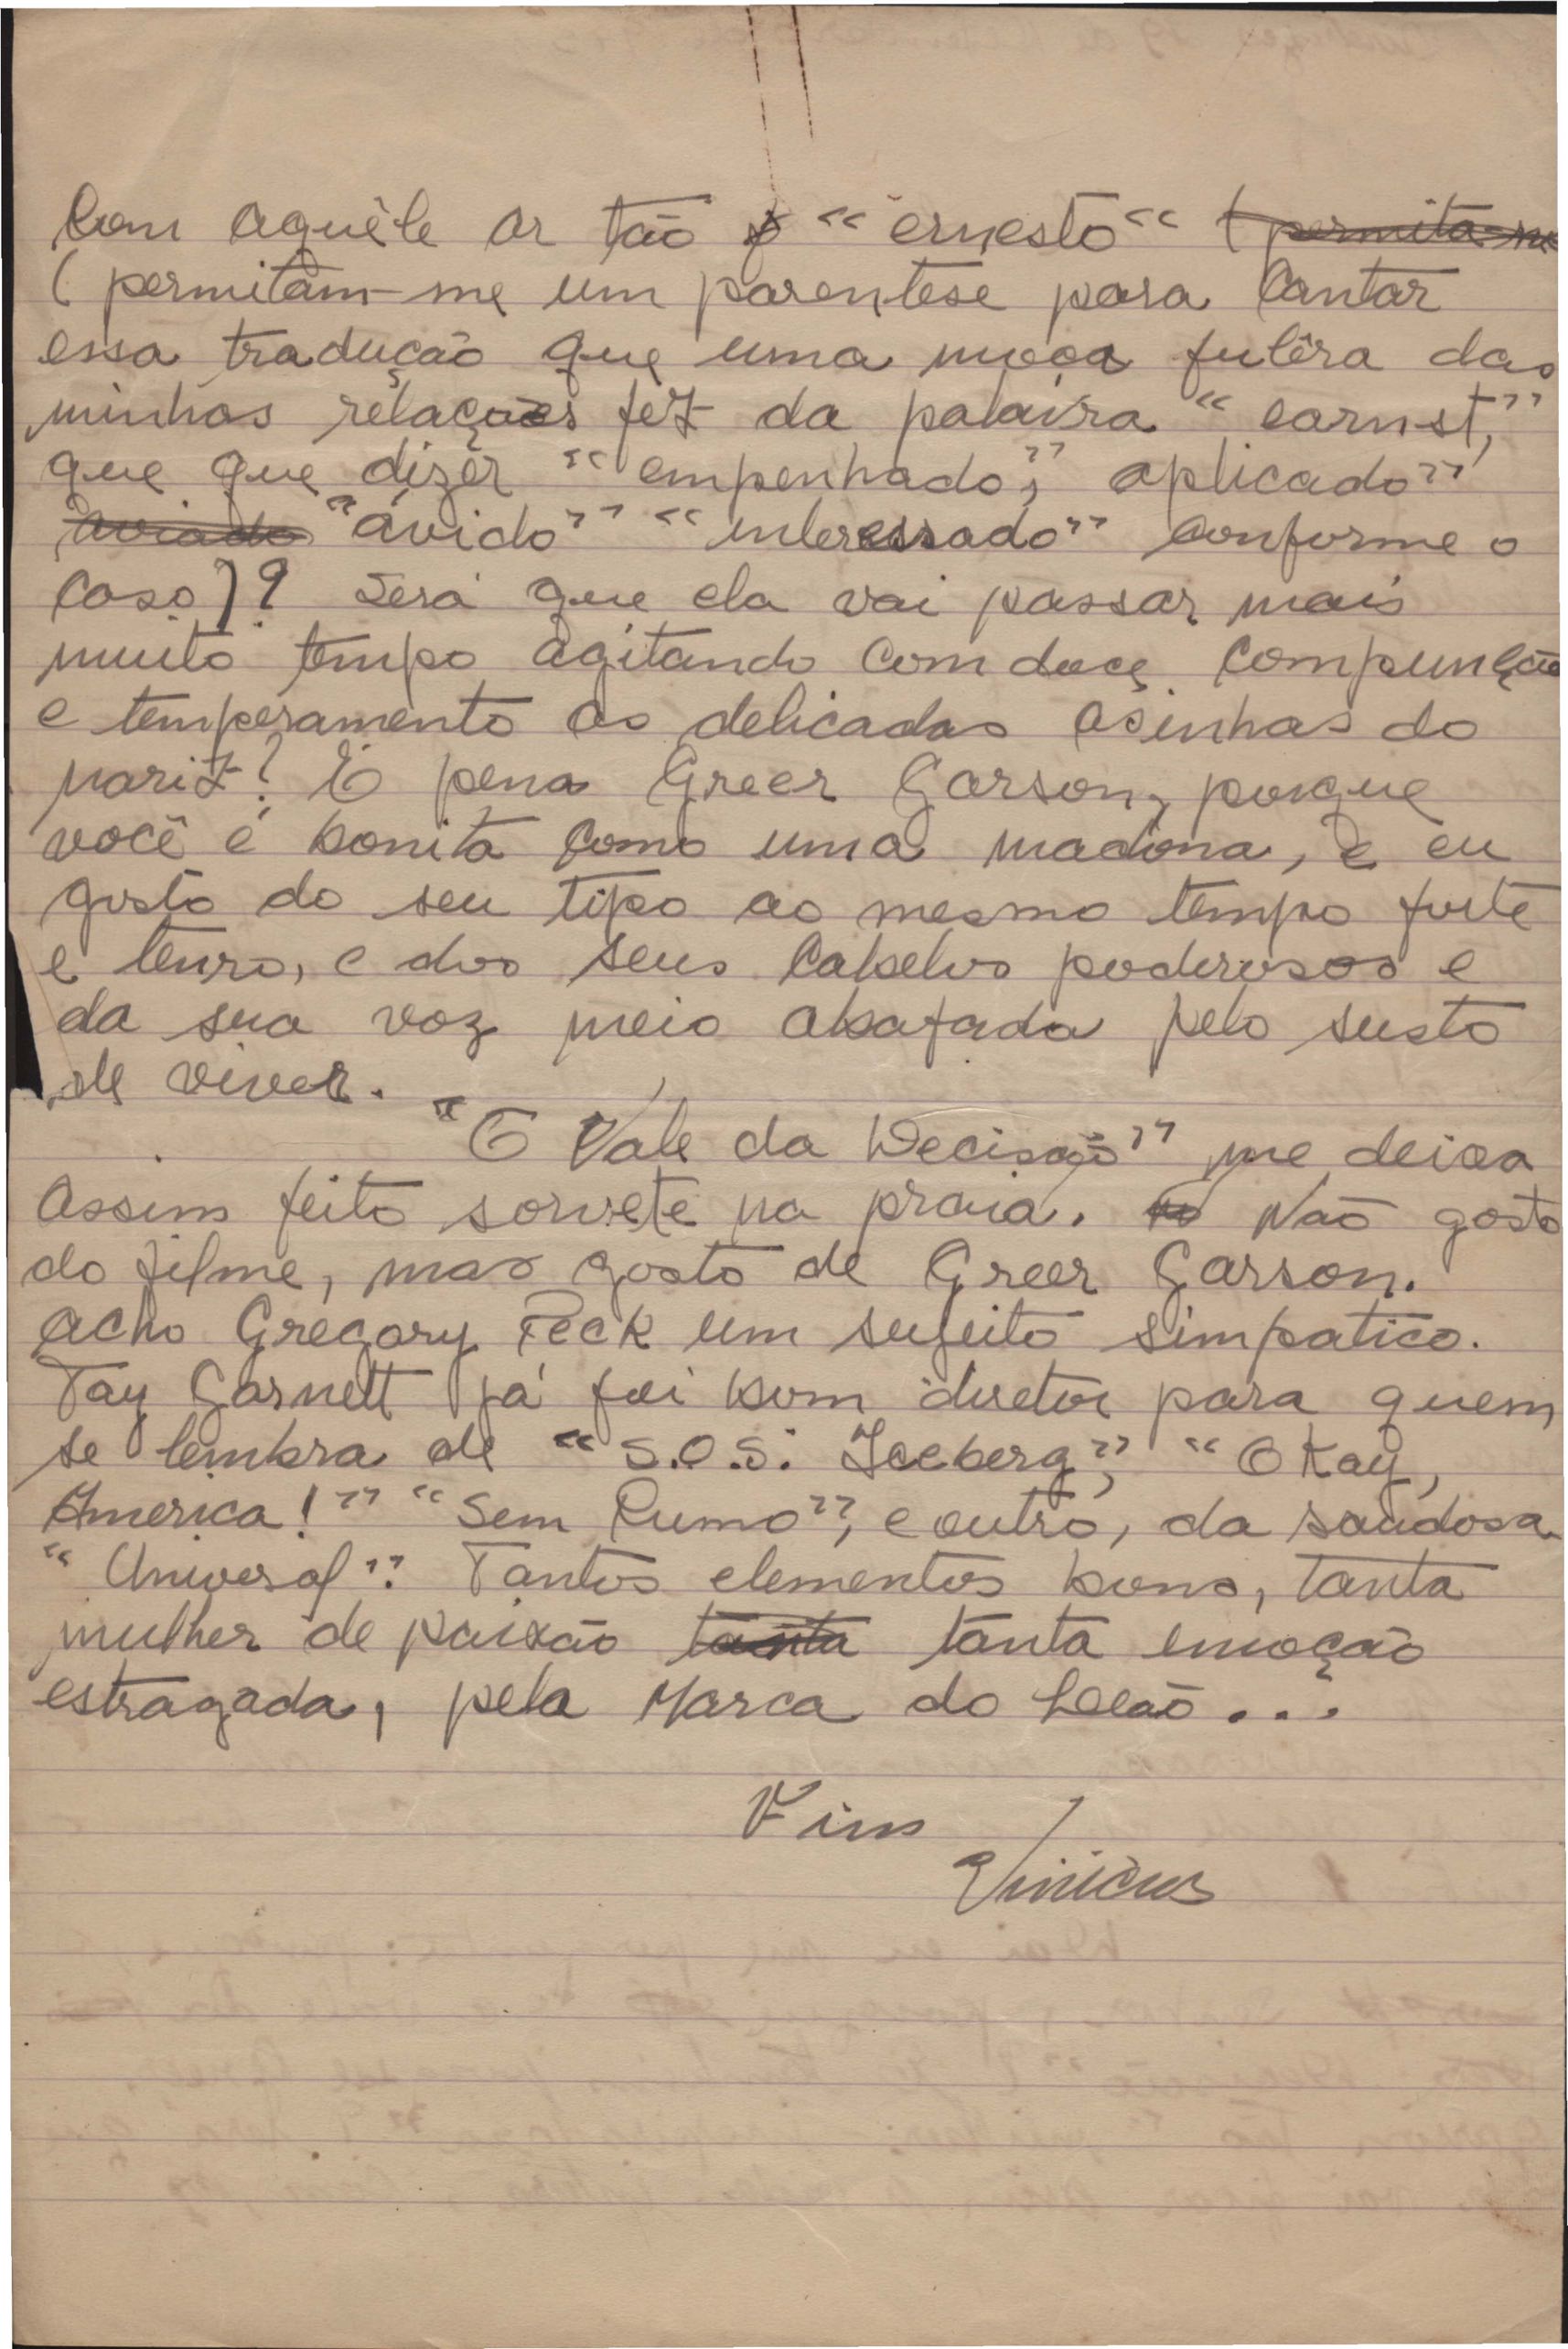 com aquêle ar tão "ernesto" (permita-me
(permitam-me um parentese para cantar
essa tradução que uma moça fulêra das
minhas relações fez da palavra "earnst,"
que que dizer "empenhado", aplicado"
aviado "ávido" "interessado" conforme o
caso)? Será que ela vai passar mais
muito tempo agitando com doce compunção
e temperamento as delicadas asinhas do
nariz? É pena Greer Garson, porque
você é bonita como uma madona, e eu
gosto do seu tipo ao mesmo tempo forte
e tenro, e dos seus cabelos poderosos e
da sua voz meio abafada pelo susto
de viver.
"O Vale da Decisão" me deixa
assim feito sorvete na praia. Não gosto
do filme, mas gosto de Greer Garson.
Acho Gregory Peck um sujeito simpatico.
Tay Garnett já foi bom diretor para quem
se lembra de "S.O.S. Iceberg", "Okay,
America!" "Sem Rumo", e outro, da saudosa
"Universal". Tantos elementos bons, tanta
mulher de paixão tanta tanta emoção
estragada, pela Marca do Leão...
Fim
Vinicius